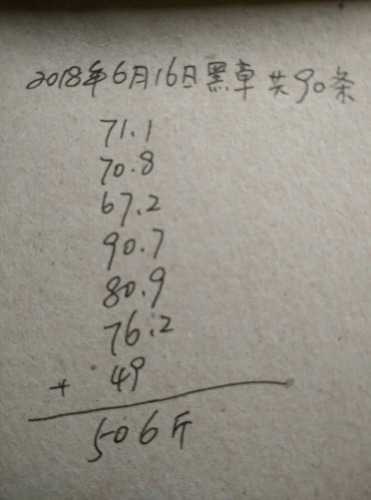 2018年6月16日黑草共90条
71.1
70.8
67.2
90.7
80.9
76.2
+ 49
506斤